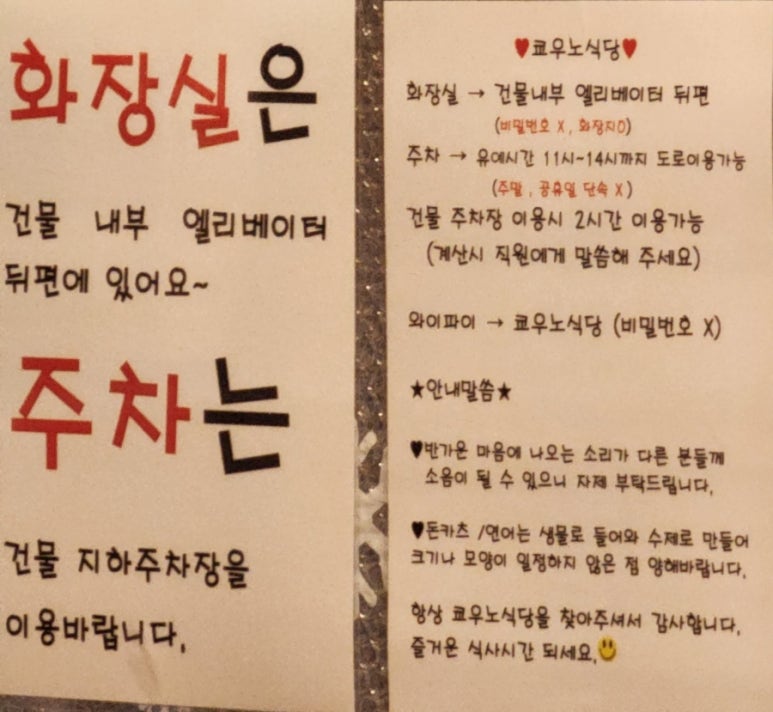 화장실은
건물 내부 엘리베이터
뒤편에 있어요~
주차는
건물 지하주차장을
이용바랍니다.
♥쿄우노식당♥
화장실 → 건물내부 엘리베이터 뒤편
(비밀번호 X, 화장지O)
주차 → 유예시간 11시~14시까지 도로이용가능
(주말, 공휴일 단속 X)
건물 주차장 이용시 2시간 이용가능
(계산시 직원에게 말씀해 주세요)
와이파이 → 쿄우노식당 (비밀번호 X)
★안내말씀★
♥반가운 마음에 나오는 소리가 다른 분들께
소음이 될 수 있으니 자제 부탁드립니다.
♥돈카츠 /연어는 생물로 들어와 수제로 만들어
크기나 모양이 일정하지 않은 점 양해바랍니다.
항상 쿄우노식당을 찾아주셔서 감사합니다.
즐거운 식사시간 되세요.